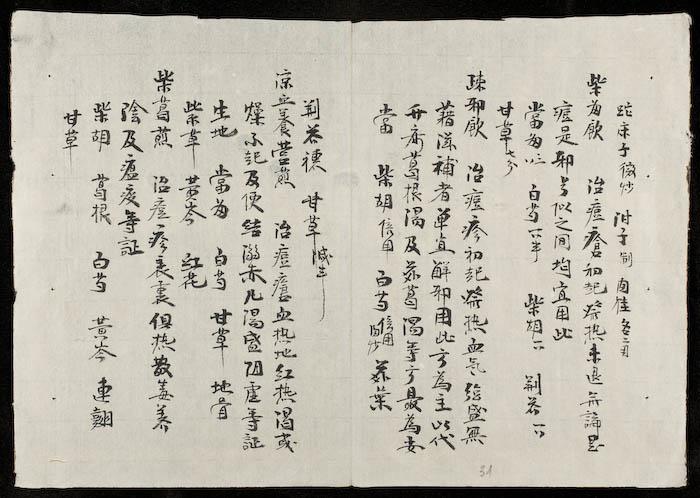 蛇床子微炒 附子制 肉桂各二
柴歸飲 治痘瘡初起發热未退無論是
痘是邪疑似之間均宜用此
當歸 白芍 柴胡 荆芥
甘草七分
疎邪飲 治痘疹初起發热血氣強盛無
藉滋補者單宜解邪用此方為主以代
升麻葛根湯及蘇葛湯等方最為妥
當 柴胡倍用 白芍倍用酒炒 蘇葉
荆芥穗 甘草減半
凉血養營煎 治痘瘡血热地红热渴或
燥不起及便結溺赤凡渴盛阴虚等証
生地 當歸 白芍 甘草 地骨
紫草 黄芩 红花
柴葛煎 治痘疹表裏俱热散毒養
陰及瘟疫等証
柴胡 葛根 白芍 黄芩 連翹
甘草
31